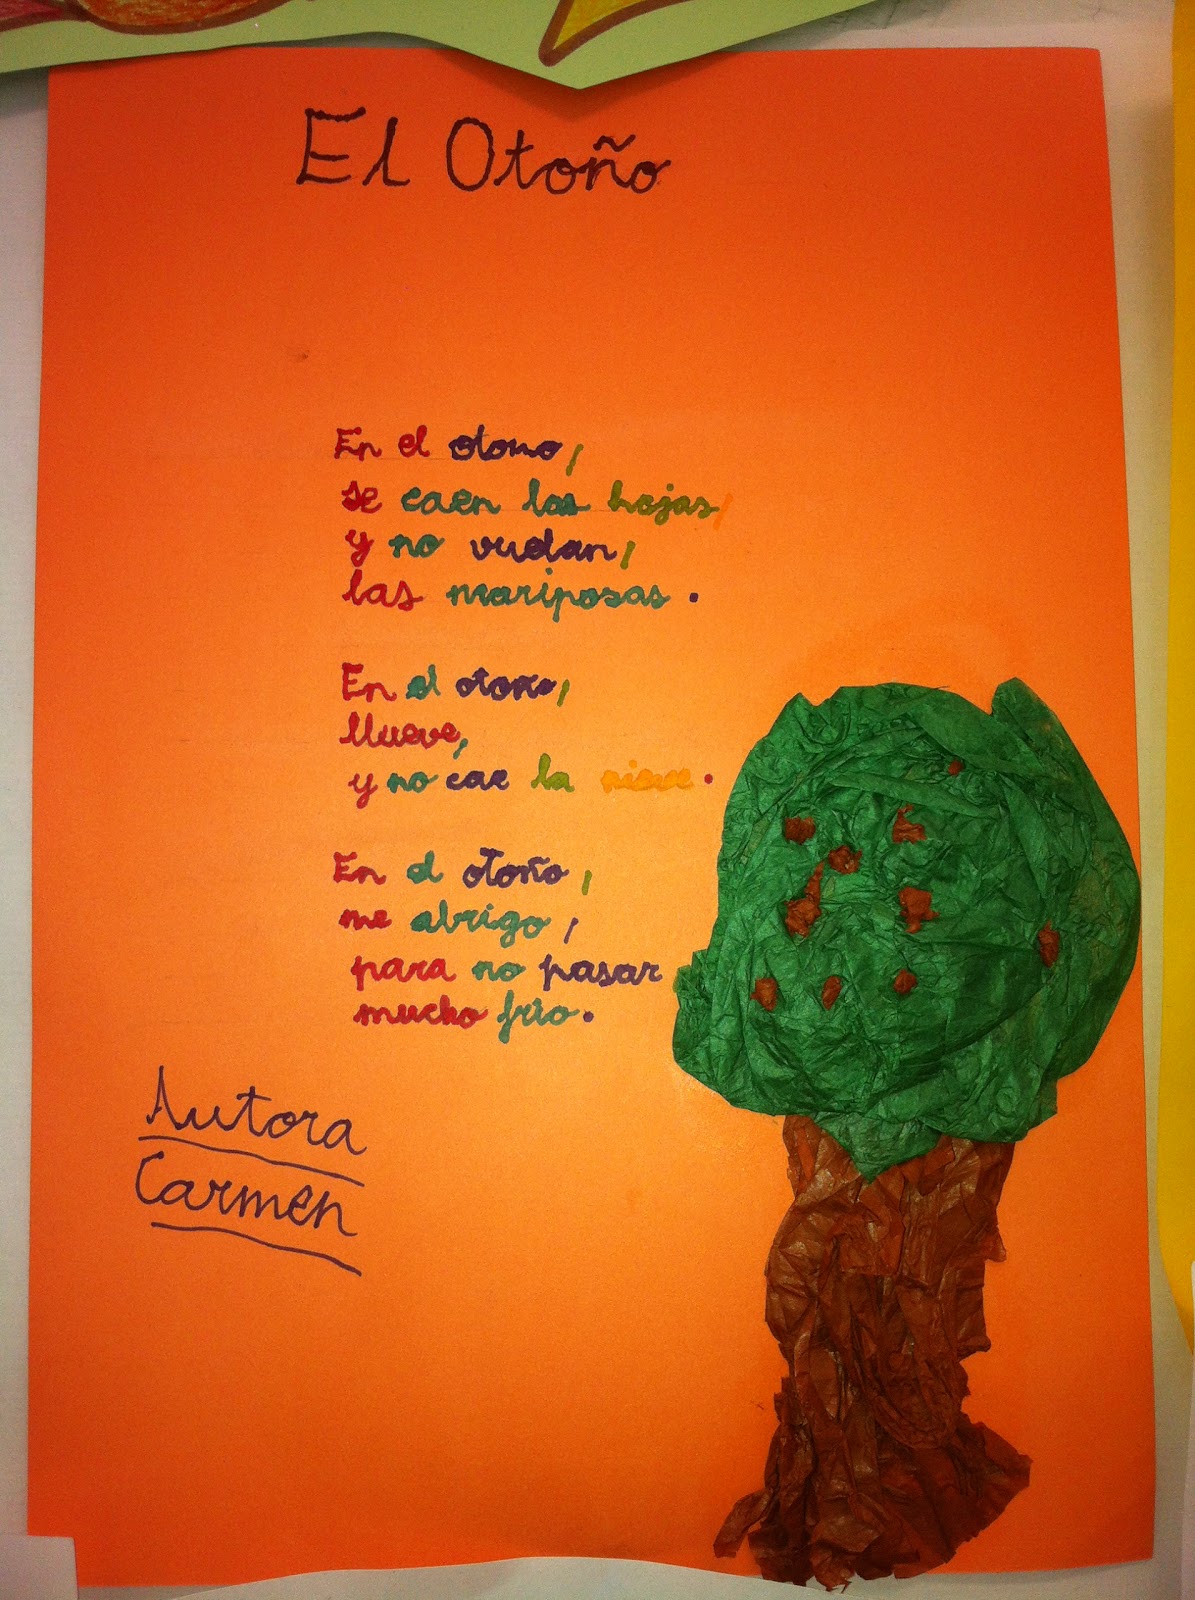 El Otoño
En el otono,
se caen las hojas,
y no vuelan,
las mariposas.
En el otono,
llueve,
y no cae la nieve.
En el otoño,
me abrigo,
para no pasar
mucho frio.
Autora
Carmen